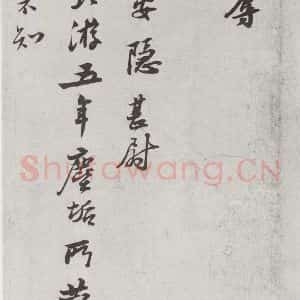 辱
安隱甚尉
游五年塵垢所
不知
Shufawang.CN